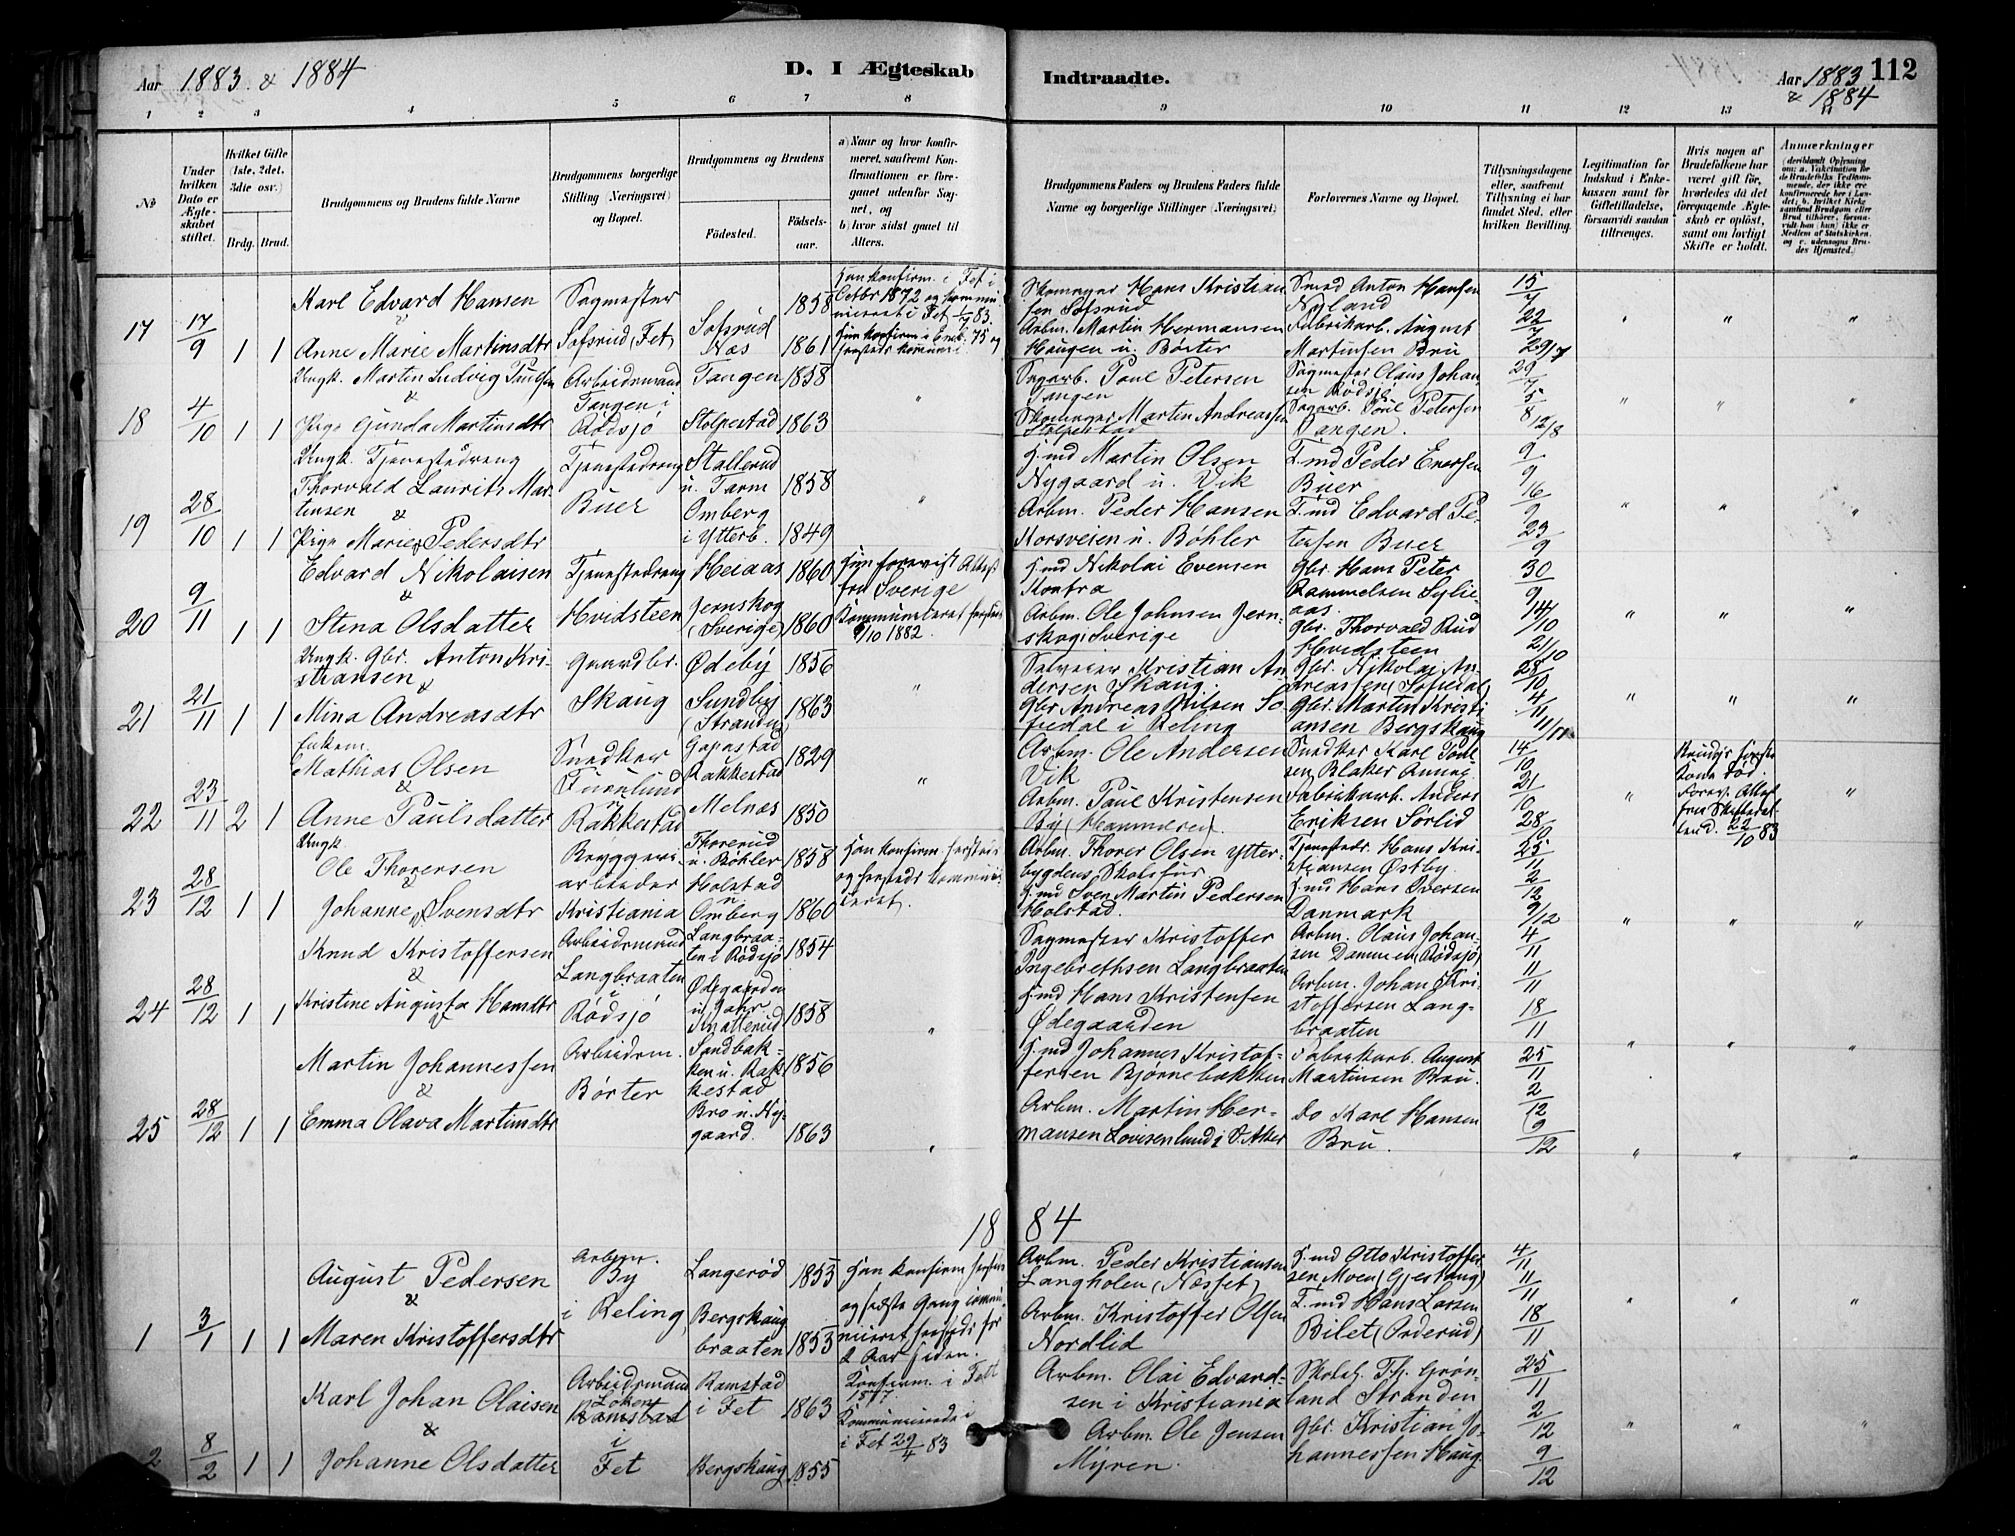 Aar 1883 & 1884
D. I Ægteskab
Indtraadte.
Aar 1883 & 1884
112
1 2 3 4 5 6 7 8 9 10 11 12 13 14
No
Under hvilken Dato er Ægteskabet stiftet.
Hvilket Gifte (1ste, 2det, 3die osv.)
Brdg. Brud.
Brudgommens og Brudens fulde Navne
Brudgommens borgerlige Stilling (Næringsvei) og Bopæl.
Brudgommens og Brudens
Fødested.
Fødselsaar.
a) Naar og hvor konfirmeret, saafremt Konfirmationen er foregaaet udenfor Sognet, og
b) hvor sidst gaaet til Alters.
Brudgommens Faders og Brudens Faders fulde Navne og borgerlige Stillinger (Næringsvei)
Forlovernes Navne og Bopæl.
Tillysningsdagene eller, saafremt Tillysning ei har fundet Sted, efter hvilken Bevilling.
Legitimation for Indskud i Enkekassen samt for Giftetilladelse, forsaavidt saadan tiltrænges.
Hvis nogen af Brudefolkene har været gift før, hvorledes da det foregaaende Ægteskab er opløst, samt om lovligt Skifte er holdt.
Anmærkninger
17 17/9 1 1
Karl Edvard Hansen
&
Anne Marie Martinsdtr
Sagmester
Sofsrud, Fet
Sofsrud
Næs
1858
1861
Han konfirm. i Fet i
Octbr 1872 og kommuniceret i Fet 1/7 83.
Skomager Hans Kristiansen Sofsrud
Arbm. Martin Hermansen
Haugen u. Börter
Smed Anton Hansen
Nyland
Fabrikarb. August
Martinsen Bru
15/7
22/7
29/7
18 4/10 1 1
Ungk. Martin Ludvig Paulsen
&
Pige Gunda Martinsdtr
Arbeidsmand
Tangen i
Rødsjö
Tangen
Stolpestad
1858
1863
Sagarb. Paul Petersen
Tangen
Skomager Martin Andreassen
Stolpestad
Sagmester Olaus Johansen Rødsjö
Sagarb. Paul Petersen
Tangen.
29/7
5/8
12/8
19 28/10 1 1
Ungk. Tjenestedreng
Thorvald Laurits Martinsen
&
Pige Marie Pedersdtr
Tjenestedreng
Buer
Stallerud
u. Tarm
Omberg
i Ytterb.
1858
1849
H.md Martin Olsen
Nygaard u. Vik
Arbm. Peder Hansen
Korsveien u. Bøhler
F.md Peder Enersen
Buer
F.md Edvard Petersen Buer
9/9
16/9
23/9
20 9/11 1 1
Edvard Nikolaisen
&
Stena Olsdatter
Tjenestedreng
Hvidsteen
Heiaas
Jernskog
(Sverige)
1860
1860
Hun forevist Attest
fra Sverige
Kommuniceret hersteds
8/10 1882.
H.md Nikolai Evensen
Kontra
Arbm. Ole Johnsen Jernskog i Sverige
Gbr. Hans Peter
Gbr. Thorvald Rud
Hvidsteen
30/9
14/10
21/10
21 21/11 1 1
Ungk. Gbr. Anton Kristiansen
&
Mina Andreasdtr
Gaardbr.
Skaug
Ødeby
Sundby
(Stranden)
1856
1863
Selveier Kristian Andersen Skaug.
Gbr Andreas Nilsen Sofiedal i Reling
Gbr. Nikolai Andreassen (Sofiedal)
Gbr. Martin Kristiansen Bergskaug
28/10
4/11
11/11
22 23/11 2 1
Enkem.
Mathias Olsen
&
Anne Paulsdatter
Snedker
Furulund
Rakkestad
Gopastad
Rakkestad
Melnæs
1829
1850
Arbm. Ole Andersen
Vik
Arbm. Paul Kristensen
By (Hammeren).
Snedker Karl Paulsen Blaker
Fabrikarb. Anders
Eriksen Sørlid
14/10
21/10
28/10
Brudgs første
Kone død.
Forev. Attest
fra Skifteretten d. 22/10 83
23 28/12 1 1
Ungk.
Ole Thoresen
&
Johanne Svensdtr
Bryggeriarbeider
Kristiania
Thorerud
u. Bøhler
Holstad
u
Omberg
1858
1860
Han konfirm. hersteds
og hersteds kommuniceret.
Arbm. Thorer Olsen Ytterbygdens Skolehus
H.md Sven Martin Pedersen
Holstad.
Tjenestedr. Hans Kristiansen Østby
H.md Hans Iversen
Danmark
25/11
2/12
9/12
24 28/12 1 1
Knud Kristoffersen
&
Kristine Augusta Hansdtr
Arbeidsmand
Langbraaten
i
Rødsjö
Langbraaten i Rødsjö
Ødegaarden
u. Jahr
Knatterud
1854
1858
Sagmester Kristoffer
Ingebrethsen Langbraaten
H.md Hans Kristensen
Ødegaarden
Arbm. Olaus Johansen Dammen (Rødsjö)
Arbm. Johan Kristoffersen Langbraaten
4/11
11/11
18/11
25 28/12 1 1
Martin Johannessen
&
Emma Olava Martinsdtr
Arbeidsm.
Börter
Sandbakken u. Rakkestad
Bro u. Nygaard.
1856
1863
H.md Johannes Kristoffersen Bjørnebakken
Arbm. Martin Hermansen Lovisenlund i Ø. Aker
Fabrikarb. August
Martinsen Bru
do Karl Hansen
Bru.
25/11
2/12
9/12
1884
1 3/1 1 1
August Pedersen
&
Maren Kristoffersdtr
Arbm.
By
i Reling
Langerød
Bergskaugbraaten
1853
1853
Han konfirm hersteds
og sidste Gang kommuniceret hersteds for
2 Aar siden.
Arbm. Peder Kristiansen
Langholen (Næsset)
Arbm. Kristoffer Olsen
Nordlid
H.md Otto Kristoffersen Moen (Gjestang)
F.md Hans Larsen
Bilet (Orderud)
4/11
11/11
18/11
2 8/2 1 1
Karl Johan Olaisen
&
Johanne Olsdatter
Arbeidsmand
Løken
Ramstad
i
Fet
Ramstad
i Fet
Bergskaug
1863
1855
Konfirm. i Fet
1877.
Kommunicerede i
i Fet 29/4 83
Arbm. Olai Edvardsen i Kristiania
Arbm. Ole Jensen
Myren.
Skolel. Th. Grønland Stranden
Gbr. Kristian Johannessen Haug
25/11
2/12
9/12